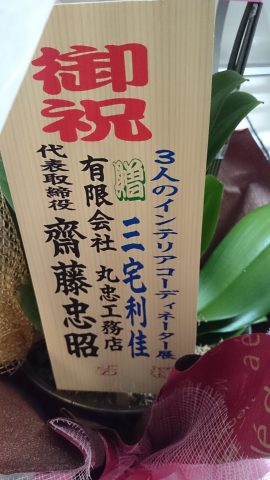 御祝
3人のインテリアコーディネーター展
三宅利佳
贈
有限会社 丸忠工務店
代表取締役 齋藤忠昭